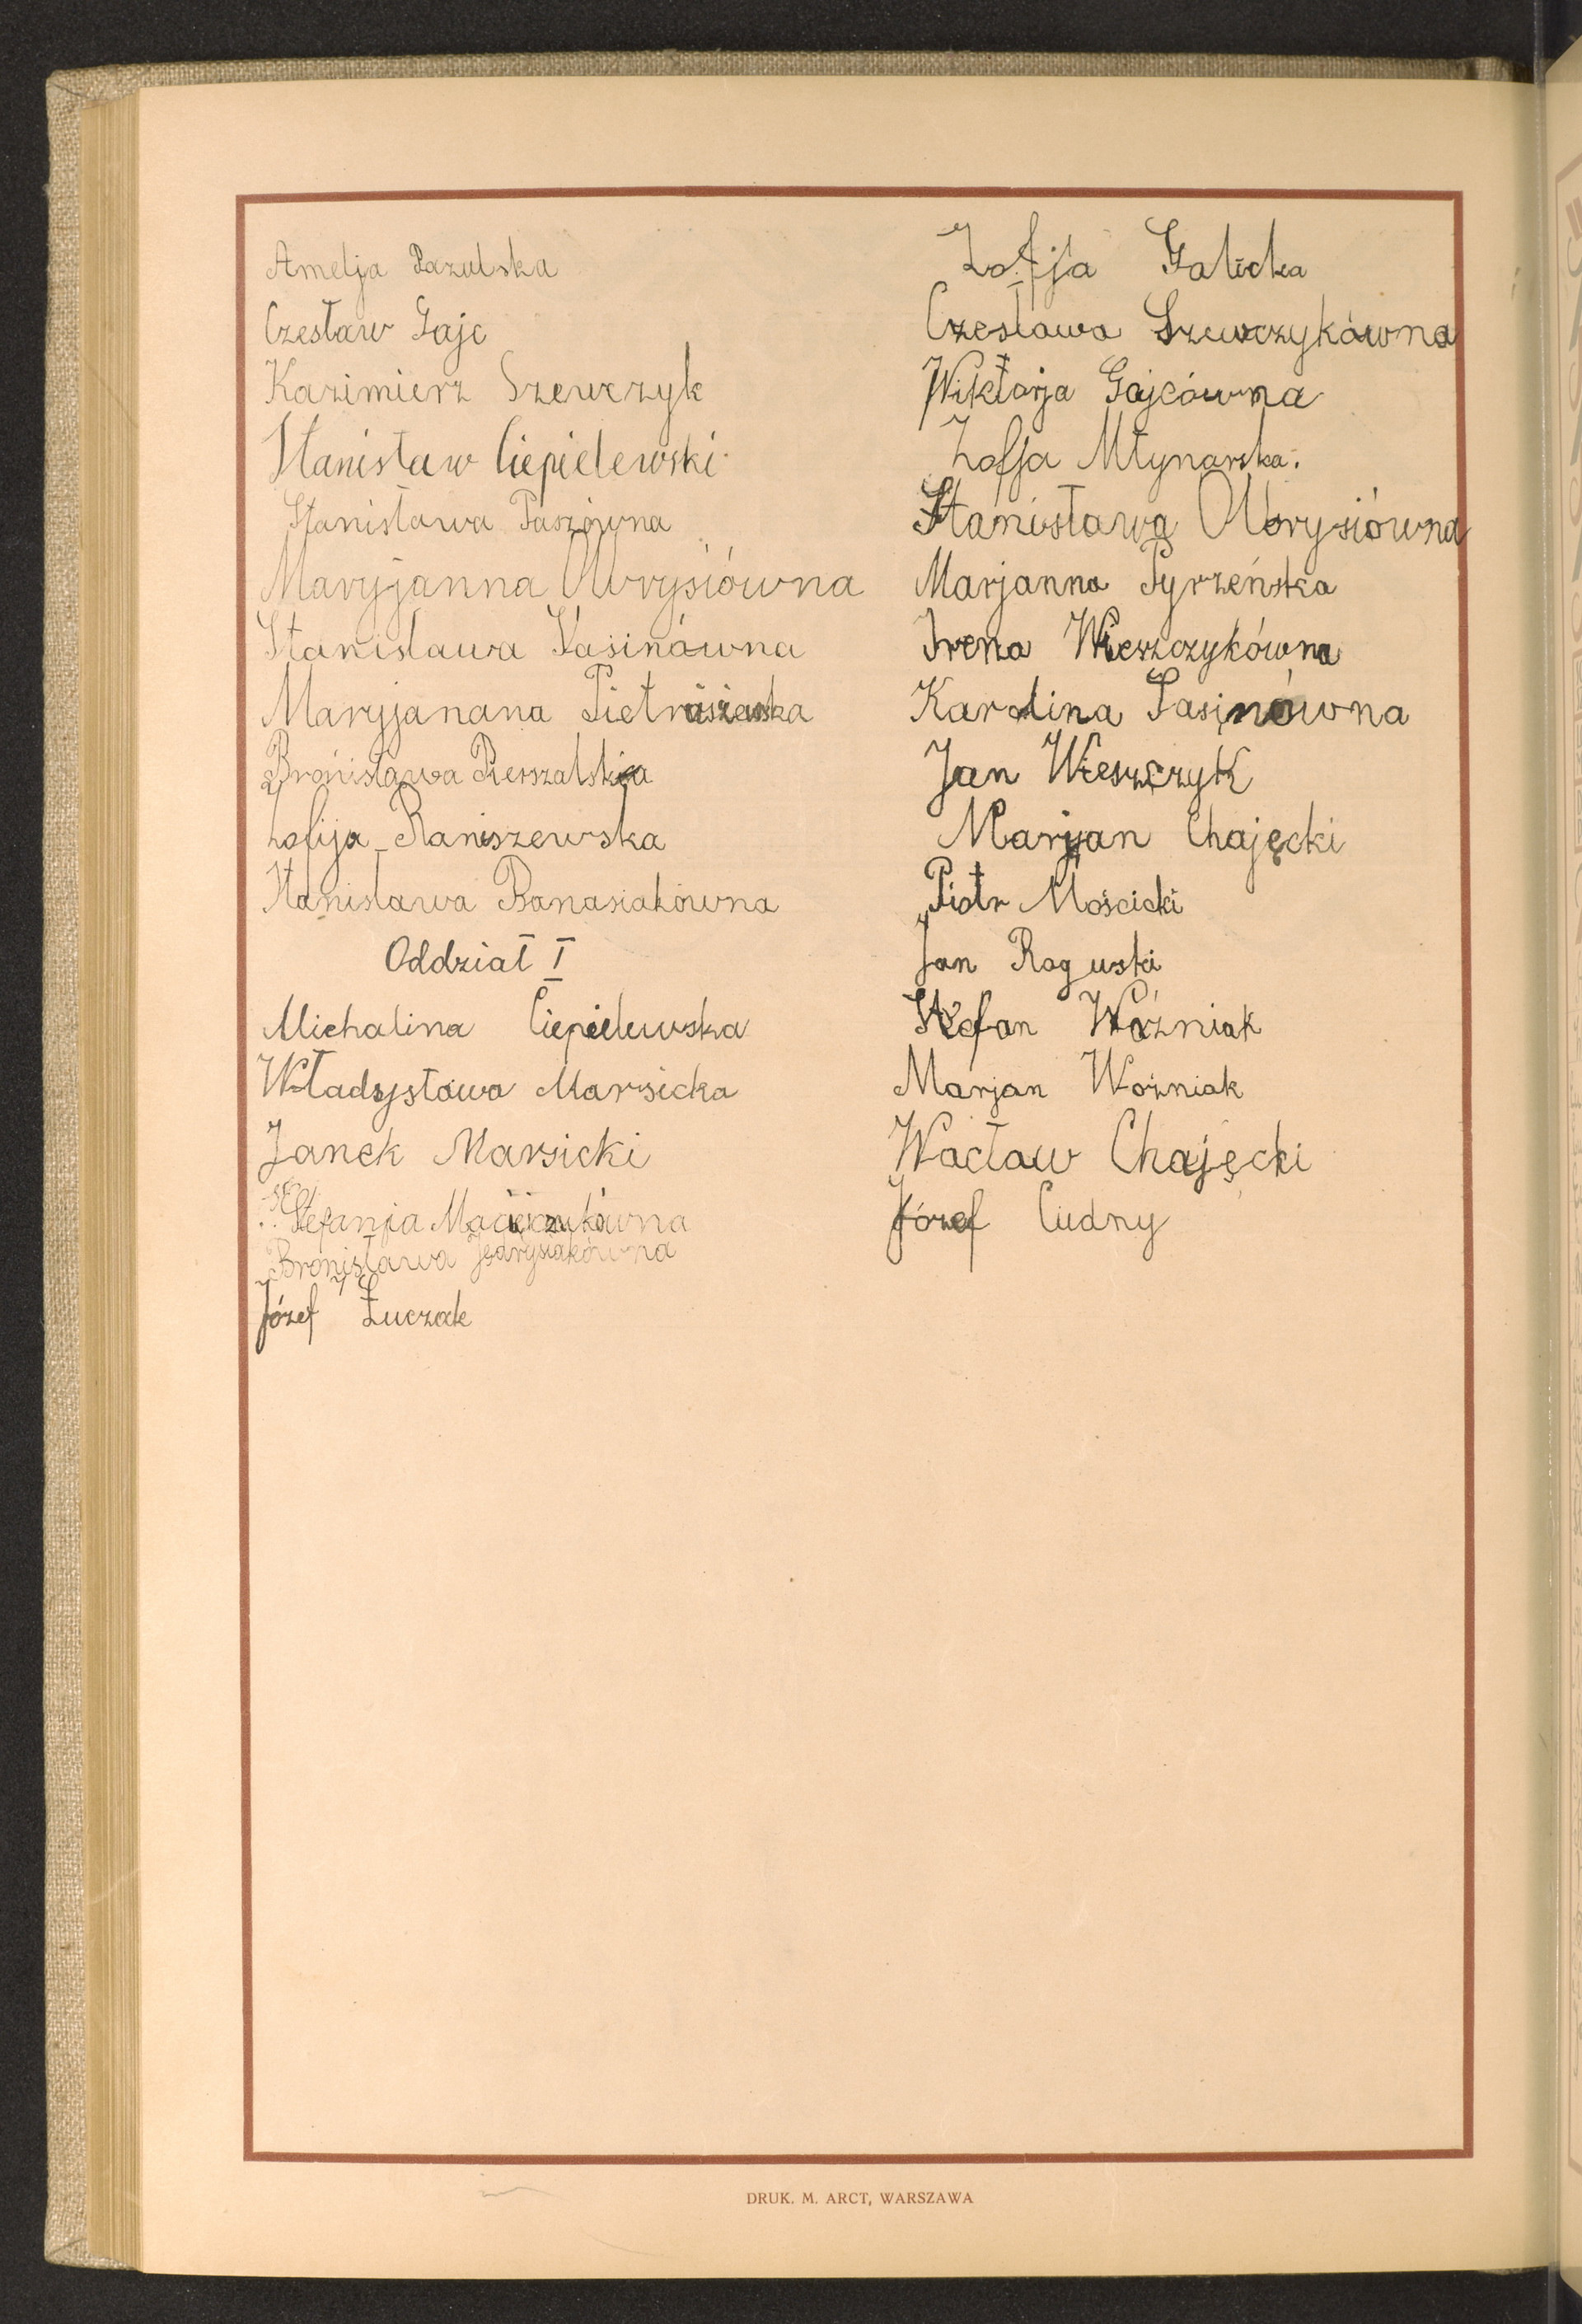 Amelja Pazulska
Czesław Gajc
Kazimierz Szewczyk
Stanisław Ciepielewski
Stanisława Paszówna
Maryjanna Obrysiówna
Stanislawa Sasinówna
Maryjanana Pietraszewska
Bronisława Pierszalska
Zofija Raniszewska
Stanislawa Banasiakówna
Oddział I
Michalina Ciepielewska
Władzysława Marsicka
Janek Marsicki
Stefanja
Bronisława Jędrysiakówna
Józef Łuczak
Zofja Galicka
Czesława Szewczykówna
Wiktorja Gajcówna
Zofja Młynarska.
Stanisława Obrysiówna
Marjanna Pyrzeńska
Irena Wieszczykówna
Karolina Sasinówna
Jan Wieszczyk
Maryjan Chajęcki
Piotr Mościcki
Jan Roguski
Stefan Woźniak
Marjan Woźniak
Wacław Chajęcki
Józef Cudny
DRUK. M. ARCT, WARSZAWA